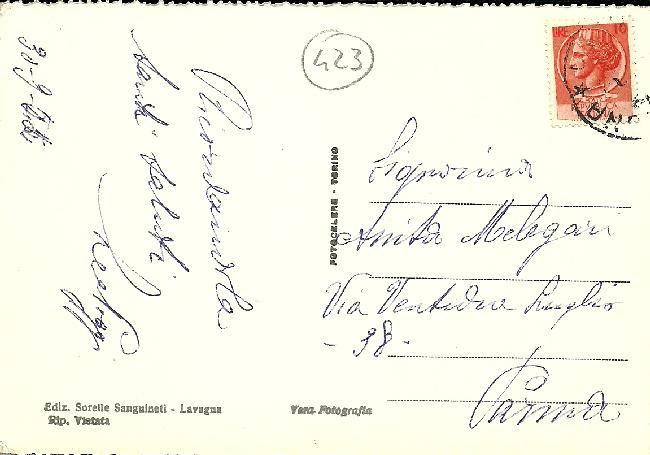 423
LIRE 10
Ricordandola
tanti saluti
FOTOCELERE - TORINO
Signorina
Anita Melegari
Via Ventidue Luglio
- 38 -
Parma
Ediz. Sorelle Sanguineti - Lavagna
Rip. Vietata
Vera Fotografia